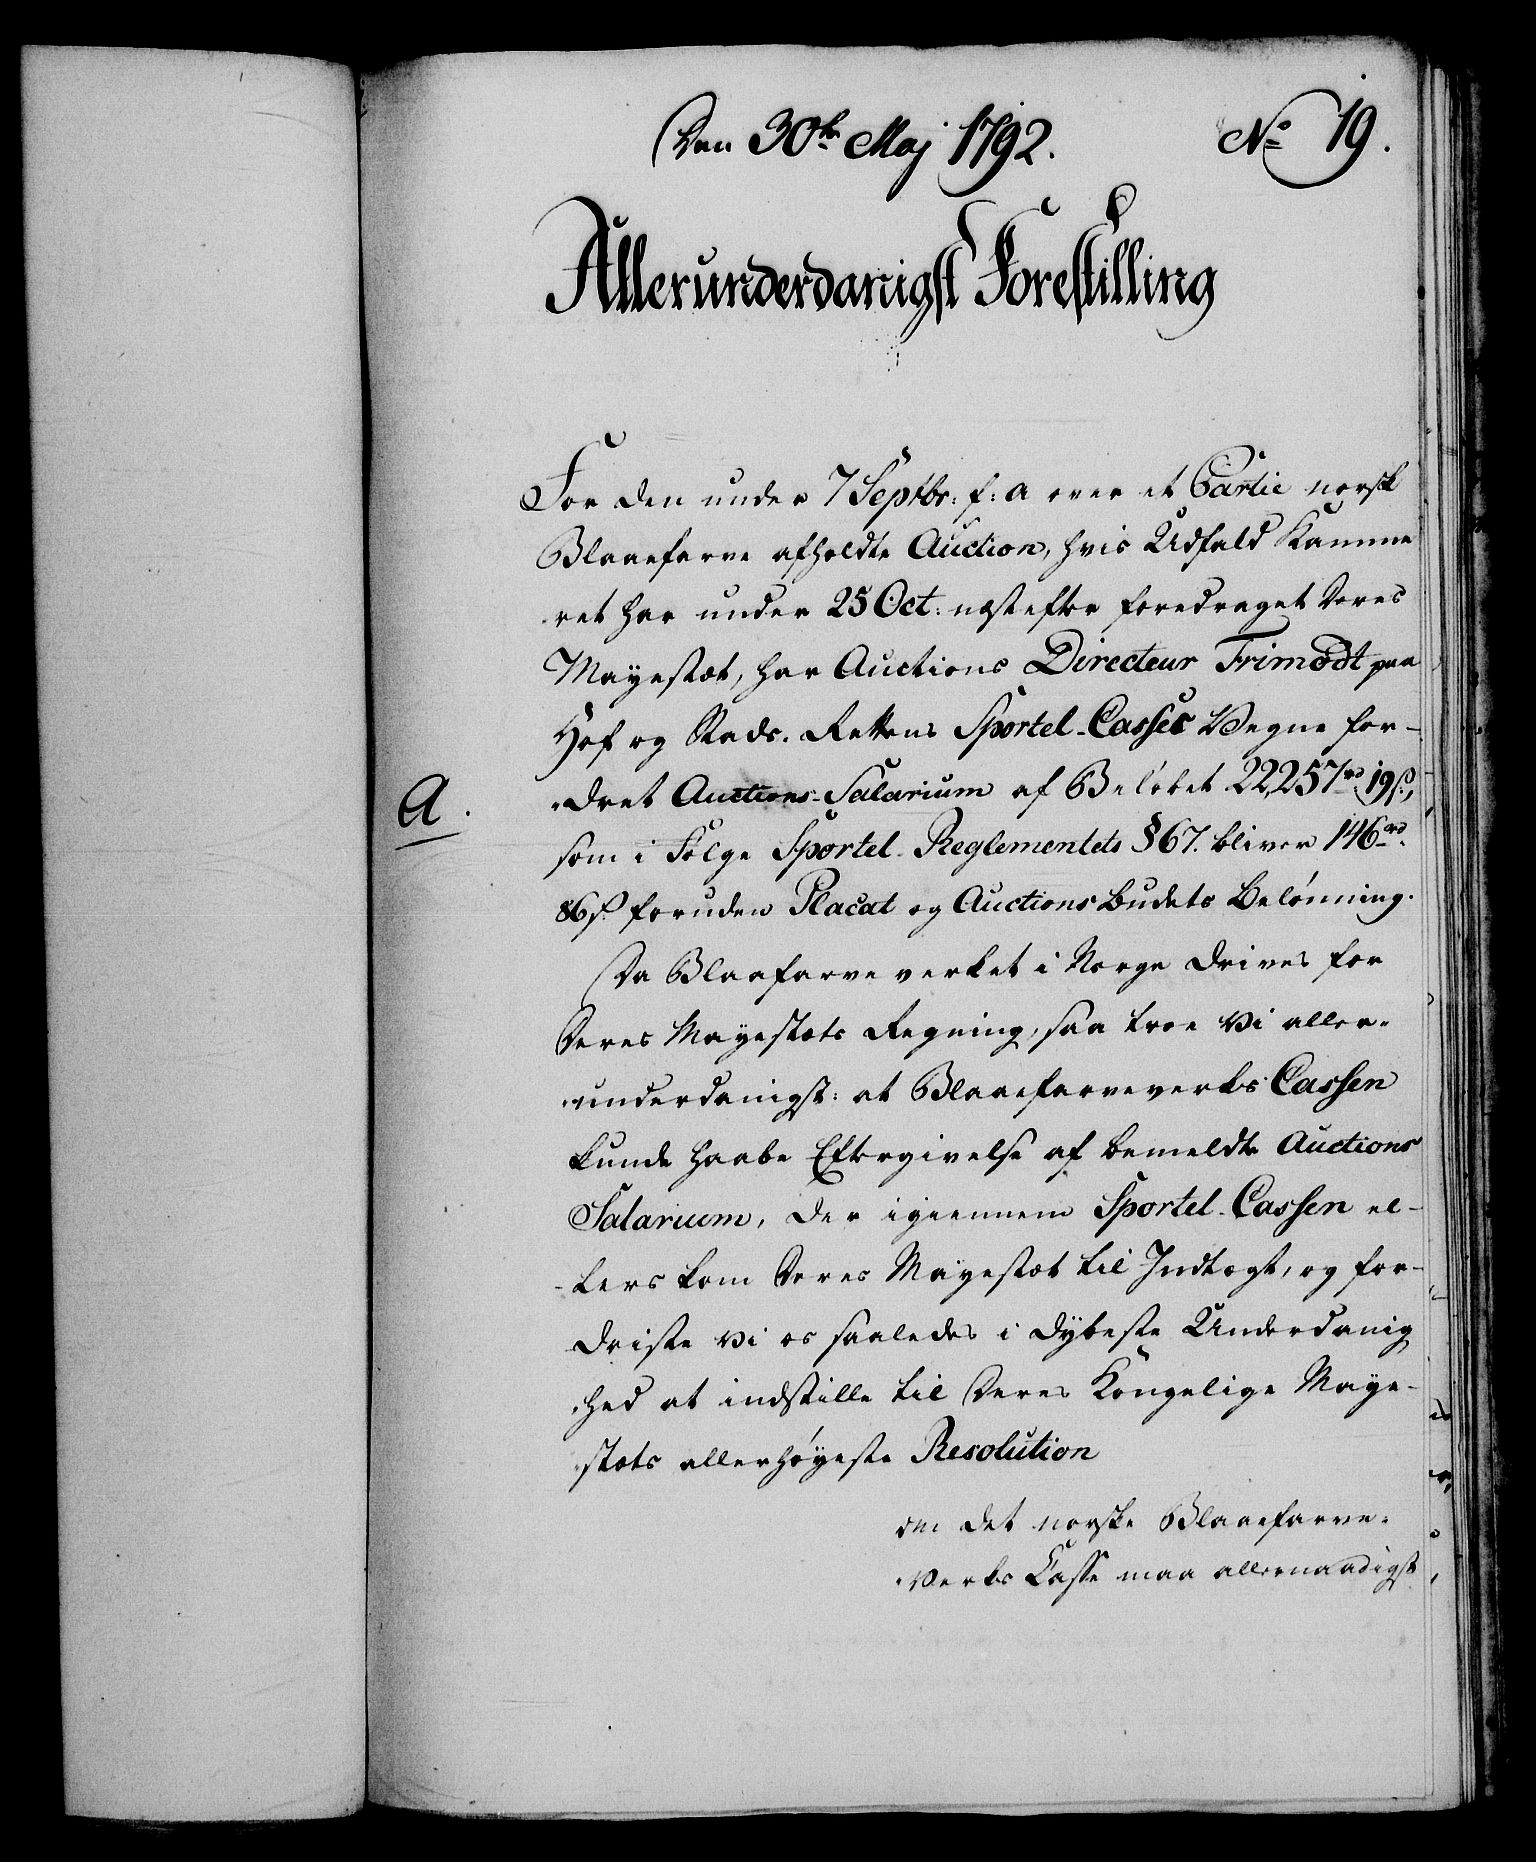 Den 30te Maj 1792.
No 19.
Allerunderdanigst Forestilling
For den under 7 Septbr: f: a over et Partie norsk
Blaaefarve afholdte Auction, hvis Udfald Kamme
ret har under 25 Oct: næstefter foredraget Deres
Mayestæt, har Auctions Directeur Trimodt paa
Hof og Stads-Rettens Sportel-Casses Vegne for-
dret Auctions-Salarium af Beløbet 22257 rd 19 s,
A.
som i Følge Sportel-Reglementets § 67. bliver 146 rd.
86 s. foruden Placat og Auctionsbudets Belønning.
Da Blaafarveverket i Norge drives for
Deres Mayestæts Regning, saa troe vi aller-
underdanigst: at Blaaefarveverks Cassen
kunde haabe Eftergivelse af bemeldte Auctions
Salarium, der igiennem Sportel-Cassen el-
lers kom Deres Mayestæt til Indtægt, og for-
driste vi os saaledes i dybeste Underdanig
hed at indstille til Deres Kongelige Maye-
stæts allerhøyeste Resolution
om det norske Blaaefarve-
Verks Casse maa allernaadigst